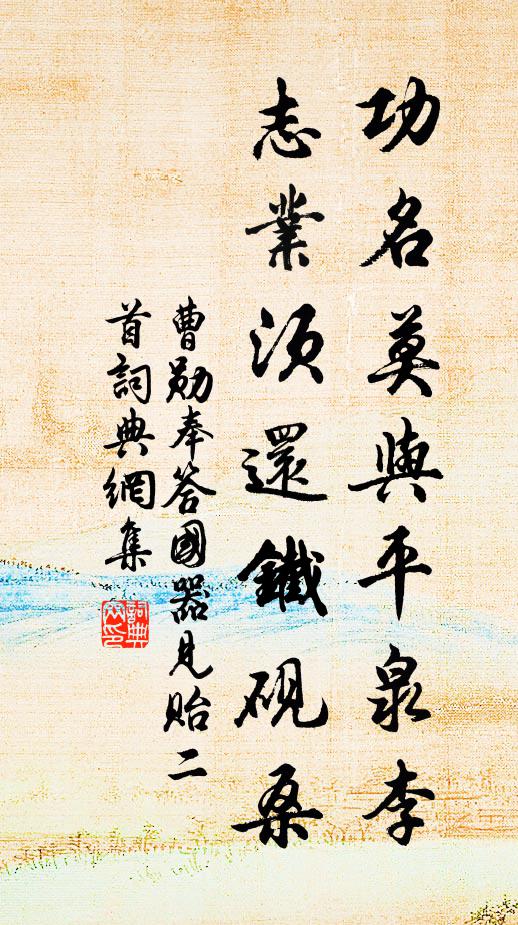 功名莫與平泉李
志業須還鐵硯桑
曹勛奉答國器見貽二
首詞典網集
詞典網印